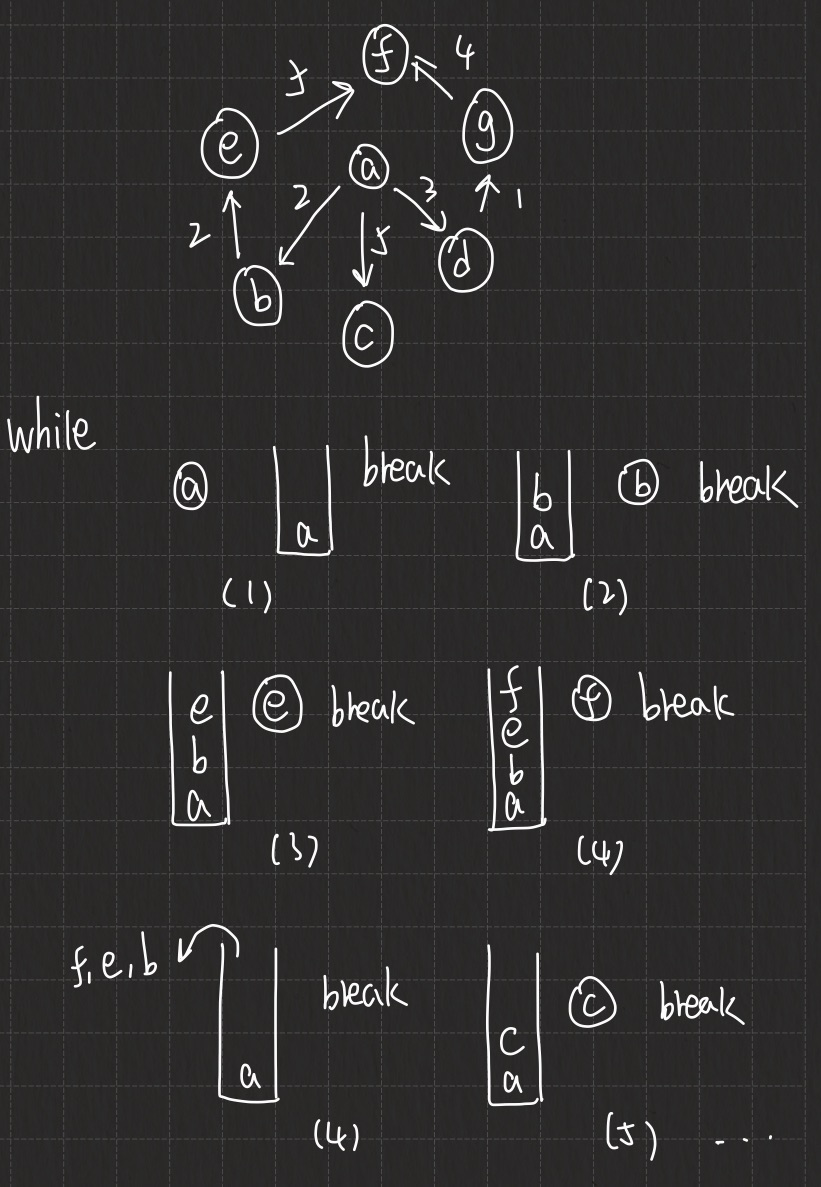 f 4
5
e g
a
2 3
2 5 1
d
b
c
while
a a break b a b break
(1) (2)
e b a e break f e b a f break
(3) (4)
f, e, b a break c a c break
(4) (5) ...